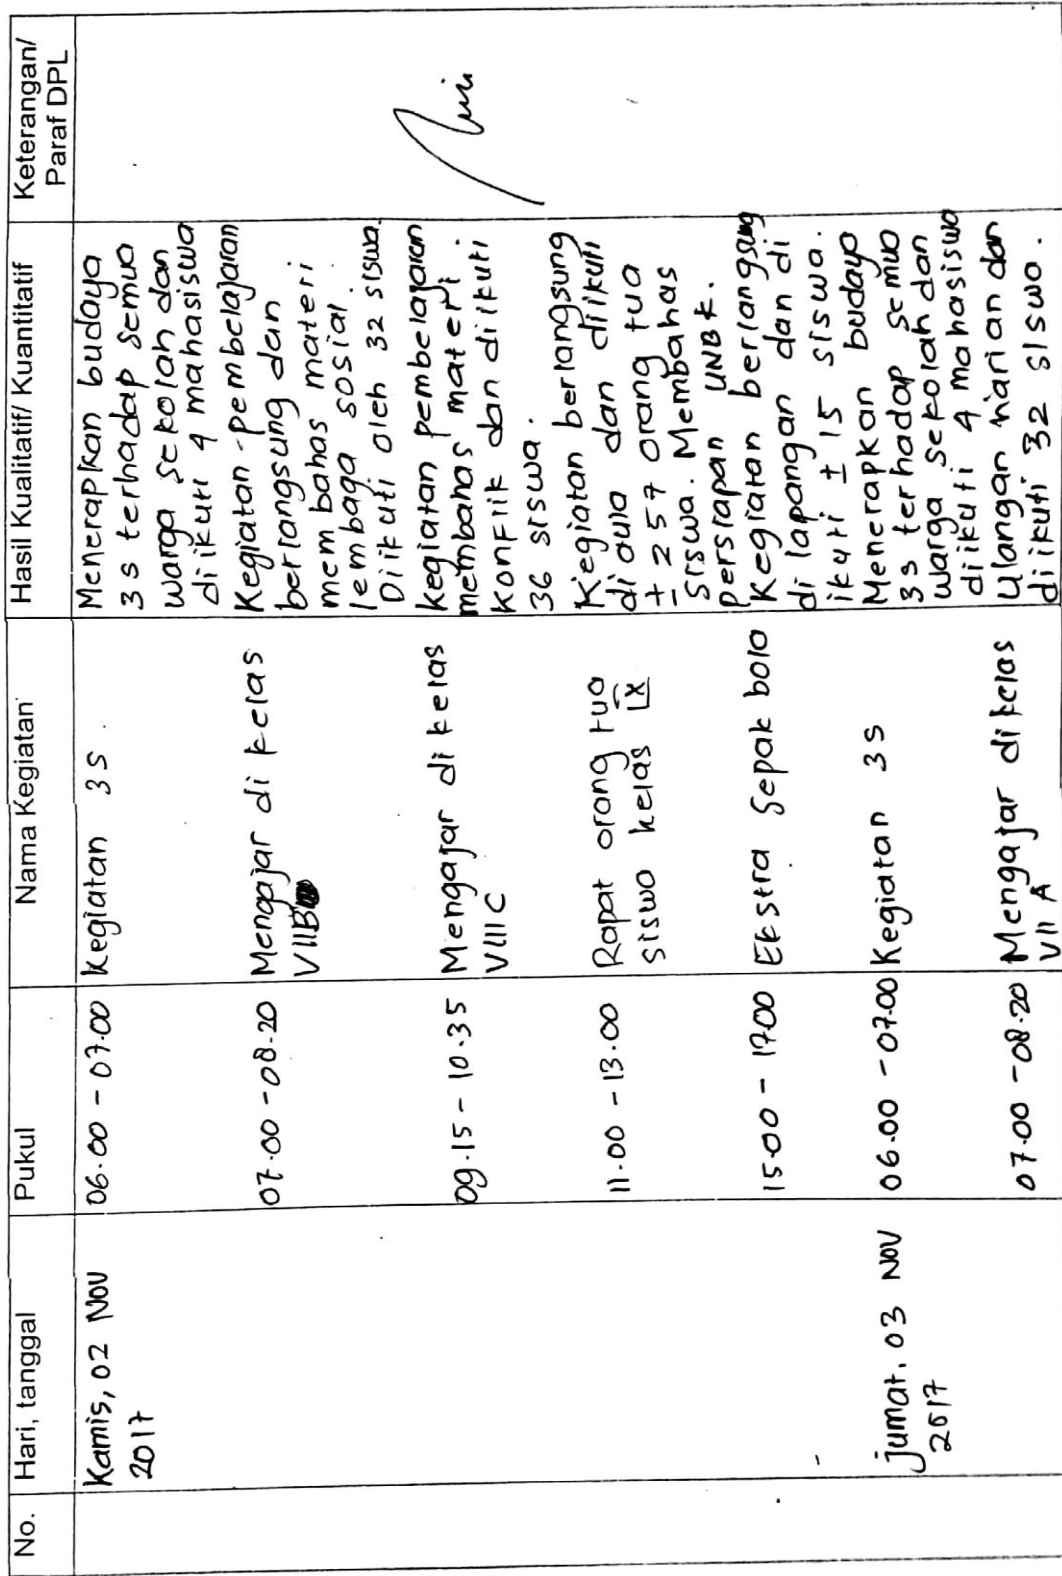 No.
Hari, tanggal
Pukul
Nama Kegiatan
Hasil Kualitatif/ Kuantitatif
Keterangan/
Paraf DPL
Kamis, 02 Nov
2017
06.00 - 07.00
kegiatan 3S.
Menerapkan budaya
3s terhadap semua
warga sekolah dan
diikuti 4 mahasiswa
07.00 - 08.20
Mengajar di kelas
VIIB
Kegiatan pembelajaran
berlangsung dan
membahas materi
lembaga sosial.
Diikuti oleh 32 siswa.
09.15 - 10.35
Mengajar di kelas
VIII C
kegiatan pembelajaran
membahas materi
konflik dan diikuti
36 siswa.
11.00 - 13.00
Rapat orang tua
siswa kelas IX
Kegiatan berlangsung
di aula dan diikuti
± 257 orang tua
siswa. Membahas
persiapan UNBK.
15.00 - 17.00
Ekstra Sepak bola
Kegiatan berlangsung
di lapangan dan di
ikuti ± 15 siswa.
jumat, 03 Nov
2017
06.00 - 07.00
Kegiatan 3S
Menerapkan budaya
3s terhadap semua
warga sekolah dan
diikuti 4 mahasiswa
07.00 - 08.20
Mengajar di kelas
VII A
Ulangan harian dan
diikuti 32 siswa.